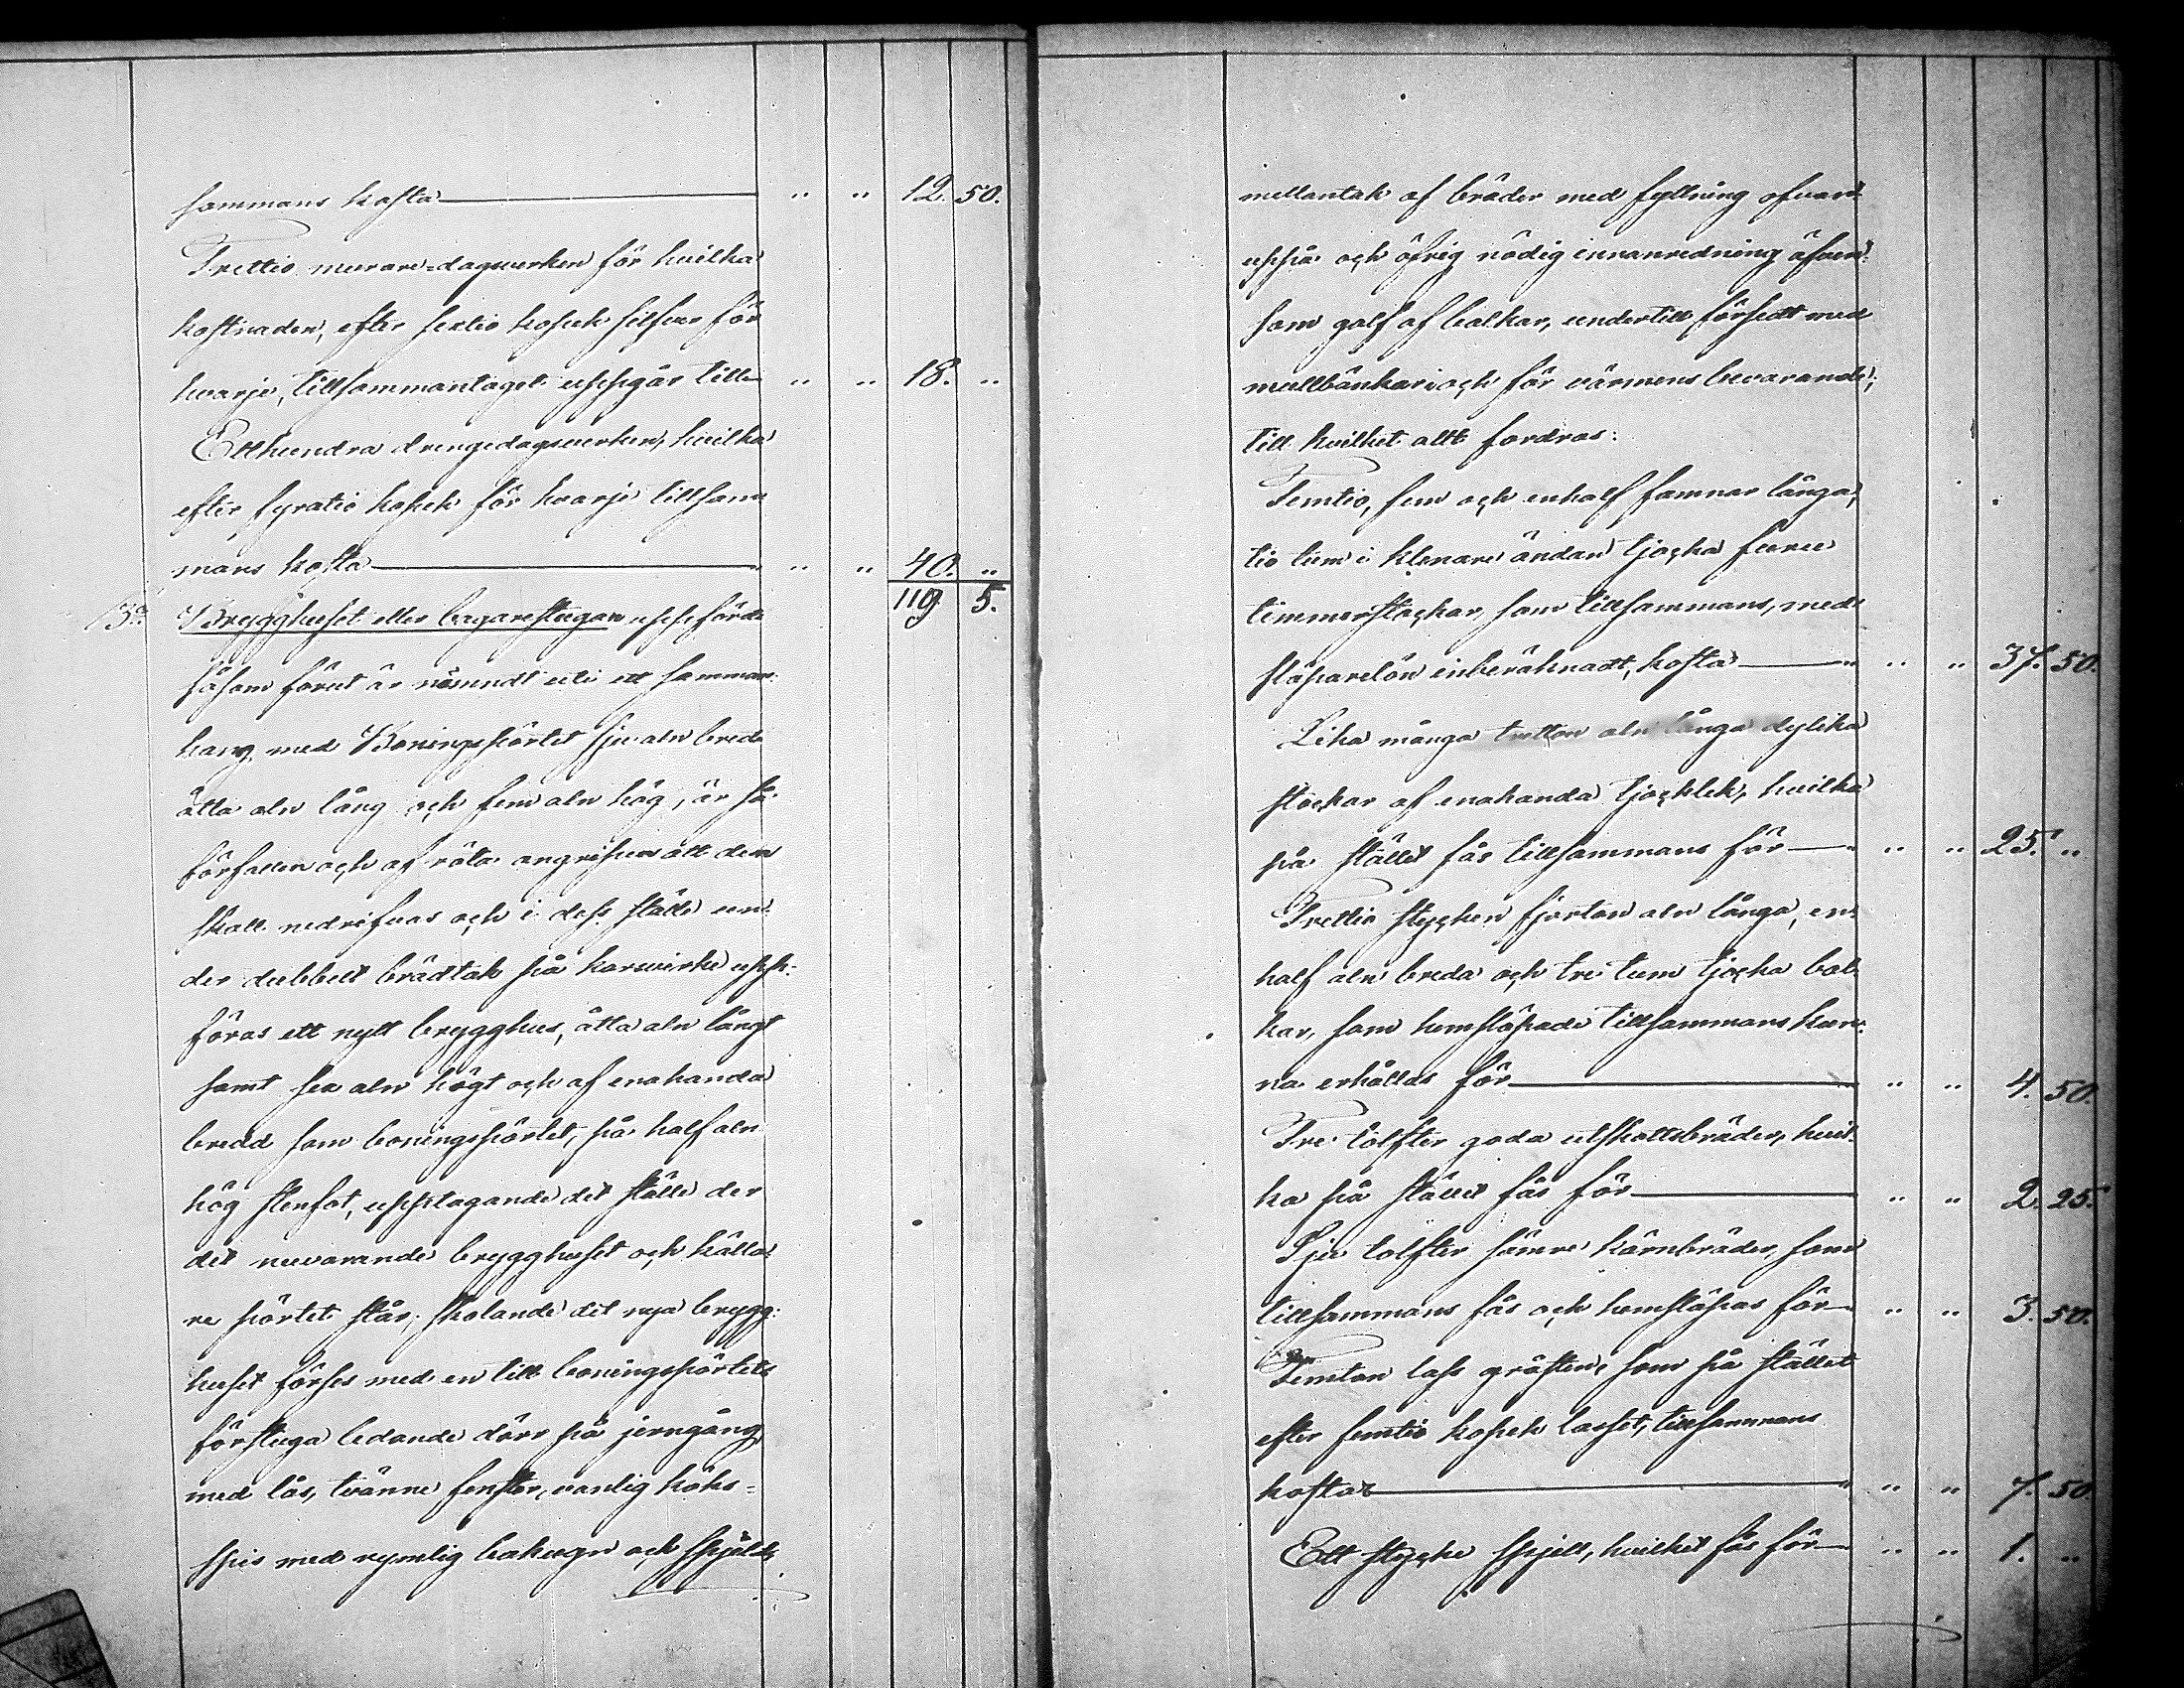 sammans kosta " " 12. 50.
Trettio murare-dagsverken för hvilka
kostnaden, efter sextio kopek silfver för
hvarje, tillsammantaget uppgår till " " 18. "
Etthundra drengedagsverken, hvilka
efter fyratio kopek för hvarje tillsam
mans kosta " " 40. "
119 5.
3o Brygghuset eller bagarestugan uppförd
såsom förut är nämndt uti ett samman:
hang med Boningspörtet sju aln bred
åtta aln lång och fem aln hög, är så
förfallen och af röta angripen att den
skall nedrifvas och i dess ställe un:
der dubbelt brädtak på korsvirke upp:
föras ett nytt brygghus, åtta aln långt
samt sex aln högt och af enahanda
bredd som boningspörtet, på half aln
hög stenfot, upptagande det ställe der
det nuvarande brygghuset och källa:
re pörtet står; skolande det nya brygg:
huset förses med en till boningspörtets
förstuga ledande dörr på jerngång
med lås, tvänne fenster, vanlig köks-
spis med rymlig bakugn och spjäld,
mellantak af bräder med fyllning ofvan:
uppå och öfrig nödig innanredning äfven:
som golf af balkar, undertill försedt med
mullbänkar och för värmens bevarande;
till hvilket allt fordras:
Femtio, fem och enhalf famnar långa,
tio tum i klenare ändan tjocka furu
timmerstockar, som tillsammans, med
släparelön inberäknadt, kosta " " 37. 50.
Lika många tretton aln långa dylika
stockar af enahanda tjocklek, hvilka
på stället fås tillsammans för " " 25. "
Trettio stycken fjorton aln långa, en:
half aln breda och tre tum tjocka bal
kar, som hemsläpade tillsammans kun:
na erhållas för " " 4. 50.
Tre tolfter goda utskottsbräder, hvil:
ka på stället fås för " " 2. 25.
Sju tolfter sämre kärnbräder, som
tillsammans fås och hemsläpas för " " 3. 50.
Femton lass gråsten, som på stället
efter femtio kopek lasset, tillsammans
kostar " " 7. 50.
Ett stycke spjell, hvilket fås för " " 1. "